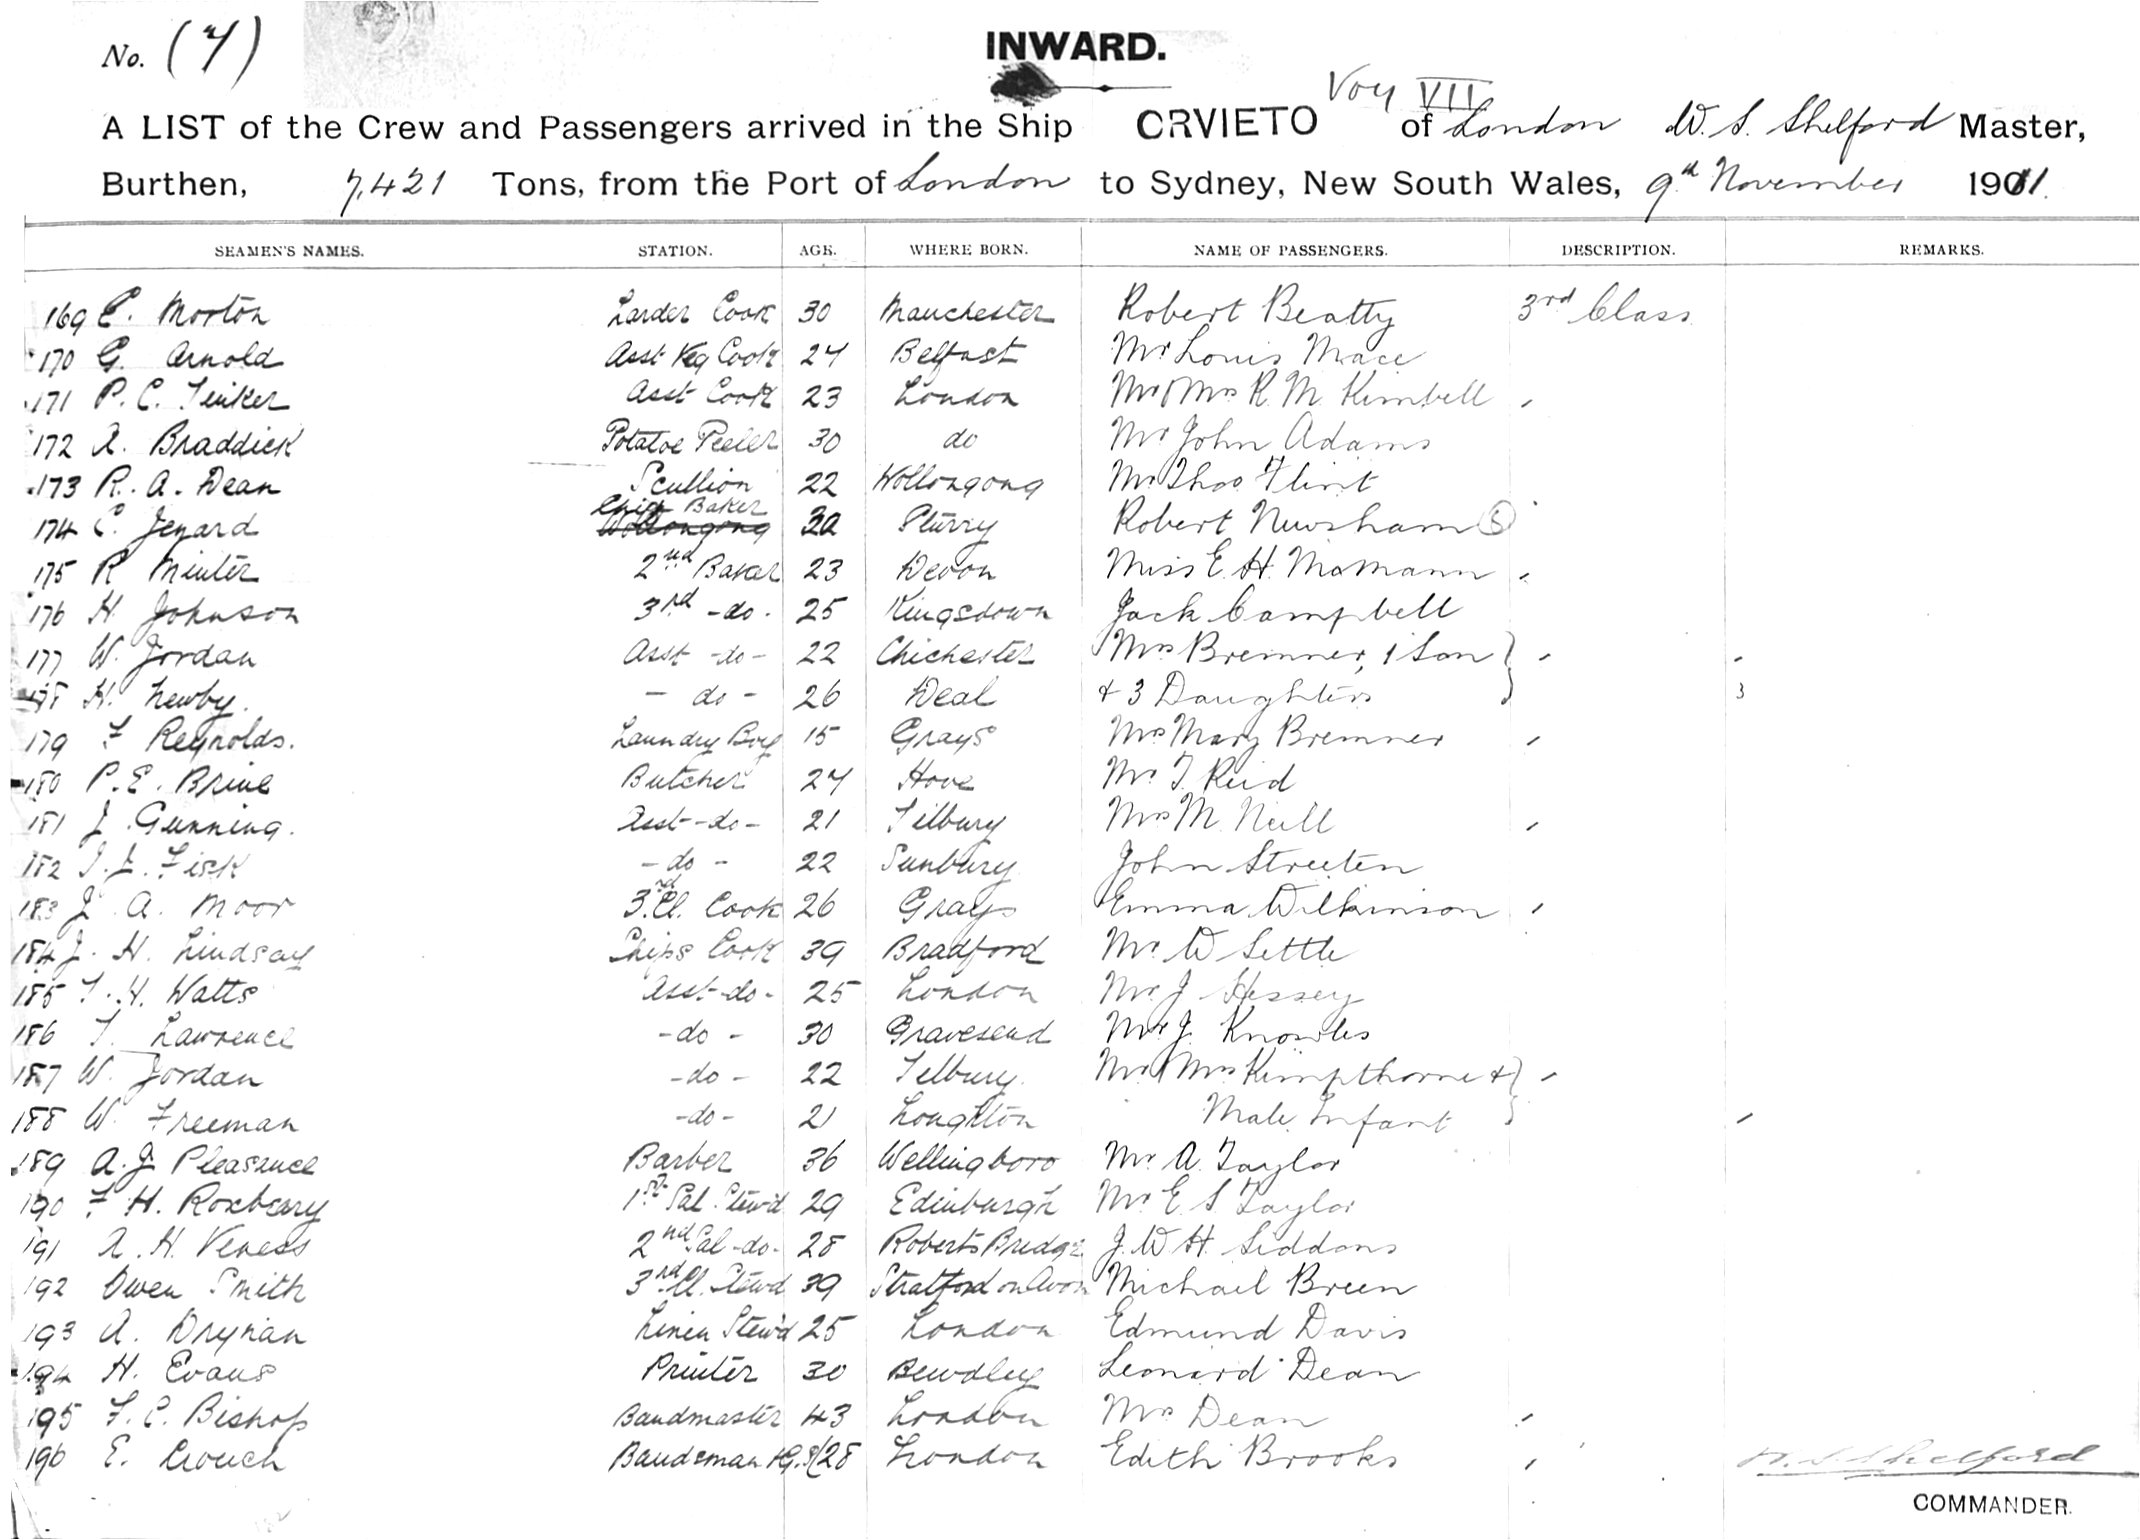 No. (7)
INWARD.
Voy VII
A LIST of the Crew and Passengers arrived in the Ship ORVIETO of London W. S. Shelford Master,
Burthen, 7,421 Tons, from the Port of London to Sydney, New South Wales, 9th November 1911.
SEAMEN'S NAMES. STATION. AGE. WHERE BORN. NAME OF PASSENGERS. DESCRIPTION. REMARKS.
169 E. Morton Larder Cook 30 Manchester Robert Beatty 3rd Class
170 G. Arnold Asst Veg Cook 24 Belfast Mr Louis Mace
171 P. C. Tinker Asst Cook 23 London Mr & Mrs R. M. Kimbell
172 A. Braddick Potatoe Peeler 30 do Mr John Adams
173 R. A. Dean Scullion 22 Wollongong Mr Thos Flint
Chief Baker
174 C. Jezard Wollongong 32 Sturry Robert Newsham (S)
175 R Minter 2nd Baker 23 Devon Miss E. H. McMann
176 H. Johnson 3rd - do - 25 Kingsdown Jack Campbell
177 W. Jordan Asst - do - 22 Chichester Mrs Bremner, 1 Son
178 H. Newby. - do - 26 Deal & 3 Daughters 3
179 F Reynolds. Laundry Boy 15 Grays Mrs Mary Bremner
180 P. E. Brine Butcher 24 Hove Mr T. Reid
181 J. Gunning. Asst - do - 21 Tilbury Mrs M. Neill
182 Fisk - do - 22 Sunbury John Streeten
183 J. A. Moor 3rd Cl. Cook 26 Grays Emma Wilkinson
184 J. H. Lindsay Ships Cook 39 Bradford Mr W Settle
185 T. H. Watts Asst - do - 25 London Mr J Hessey
186 T. Lawrence - do - 30 Gravesend Mr J. Knowles
187 W. Jordan - do - 22 Tilbury. Mr & Mrs Kimpthorne &
188 W. Freeman - do - 21 Loughton Male Infant
189 A. J. Pleasance Barber 36 Wellingboro Mr A. Taylor
190 F. H. Roxbeary 1st Sal. Stew'd 29 Edinburgh Mr E. S Taylor
191 A. H. Veness 2nd Sal - do - 28 Roberts Bridge J. W. H. Siddons
192 Owen Smith 3rd Cl. Stewd 39 Stratford on Avon Michael Breen
193 A. Drynan Linen Stew'd 25 London Edmund Davis
194 H. Evans Printer 30 Bewdley Leonard Dean
195 F. C. Bishop Bandmaster 43 London Mrs Dean
196 E. Crouch Bandsman 28 London Edith Brooks
W. S. Shelford
COMMANDER.